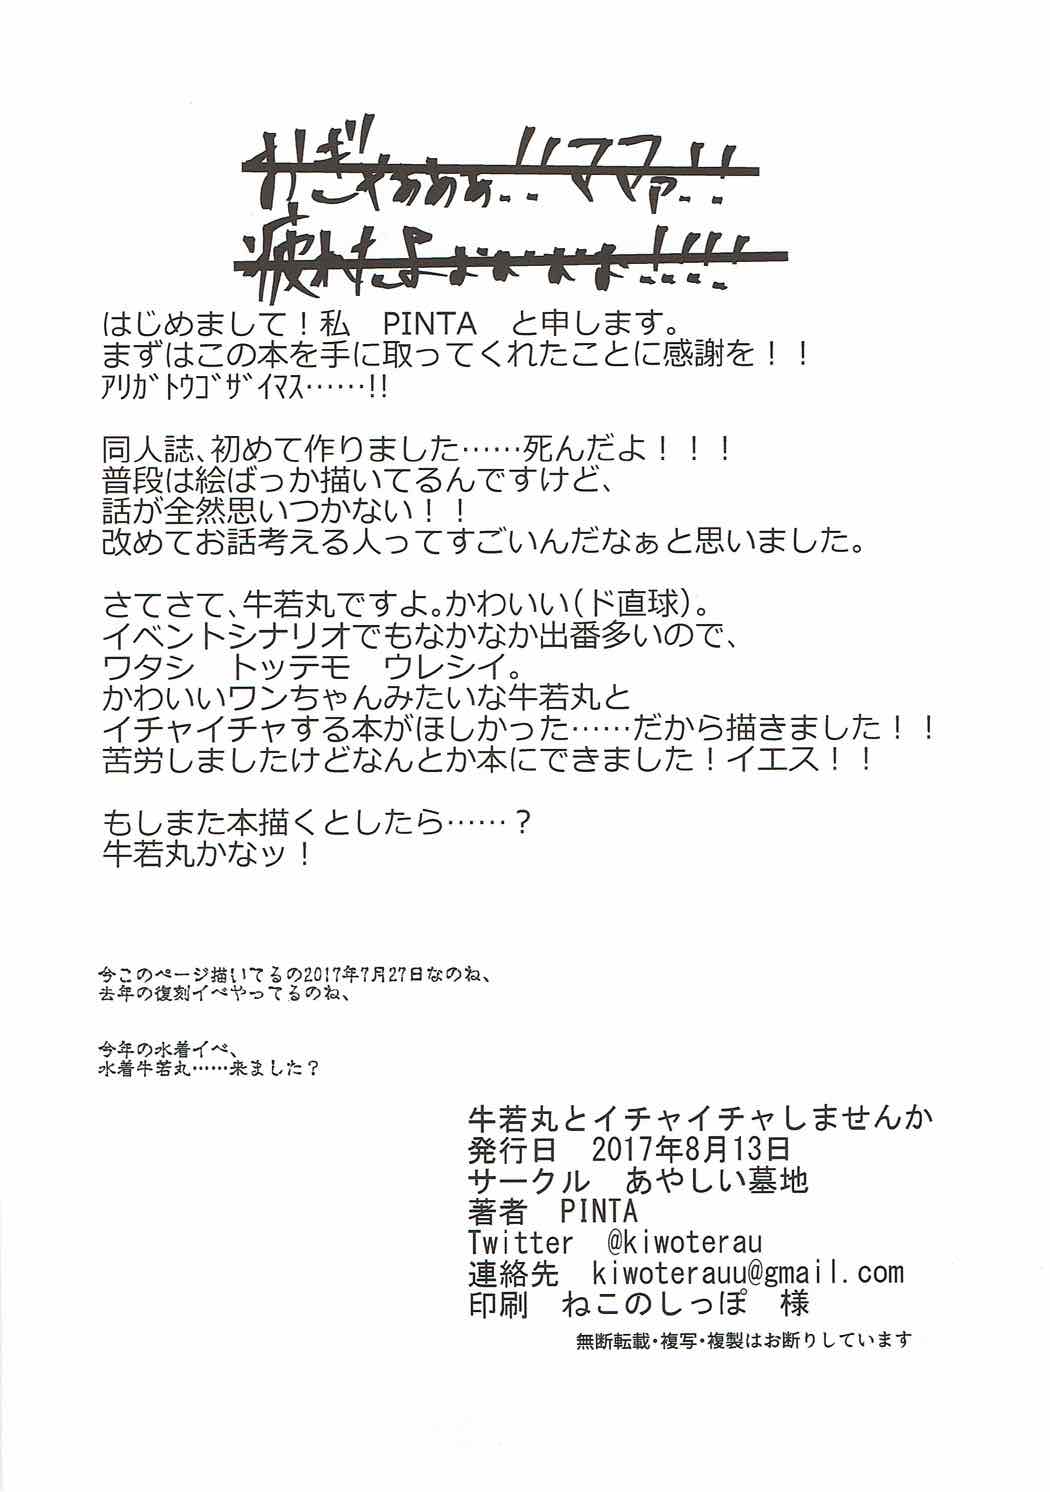 おぎゃあぁぁ!!ママァ!!
疲れたよぉぉぉぉ!!!!
はじめまして！私　PINTA　と申します。
まずはこの本を手に取ってくれたことに感謝を！！
ｱﾘｶﾞﾄｳｺﾞｻﾞｲﾏｽ……!!
同人誌、初めて作りました……死んだよ！！！
普段は絵ばっか描いてるんですけど、
話が全然思いつかない！！
改めてお話考える人ってすごいんだなぁと思いました。
さてさて、牛若丸ですよ。かわいい（ド直球）。
イベントシナリオでもなかなか出番多いので、
ワタシ　トッテモ　ウレシイ。
かわいいワンちゃんみたいな牛若丸と
イチャイチャする本がほしかった……だから描きました！！
苦労しましたけどなんとか本にできました！イエス！！
もしまた本描くとしたら……？
牛若丸かなッ！
今このページ描いてるの2017年7月27日なのね、
去年の復刻イベやってるのね、
今年の水着イベ、
水着牛若丸……来ました？
牛若丸とイチャイチャしませんか
発行日　2017年8月13日
サークル　あやしい墓地
著者　PINTA
Twitter　@kiwoterau
連絡先　kiwoterauu@gmail.com
印刷　ねこのしっぽ　様
無断転載・複写・複製はお断りしています